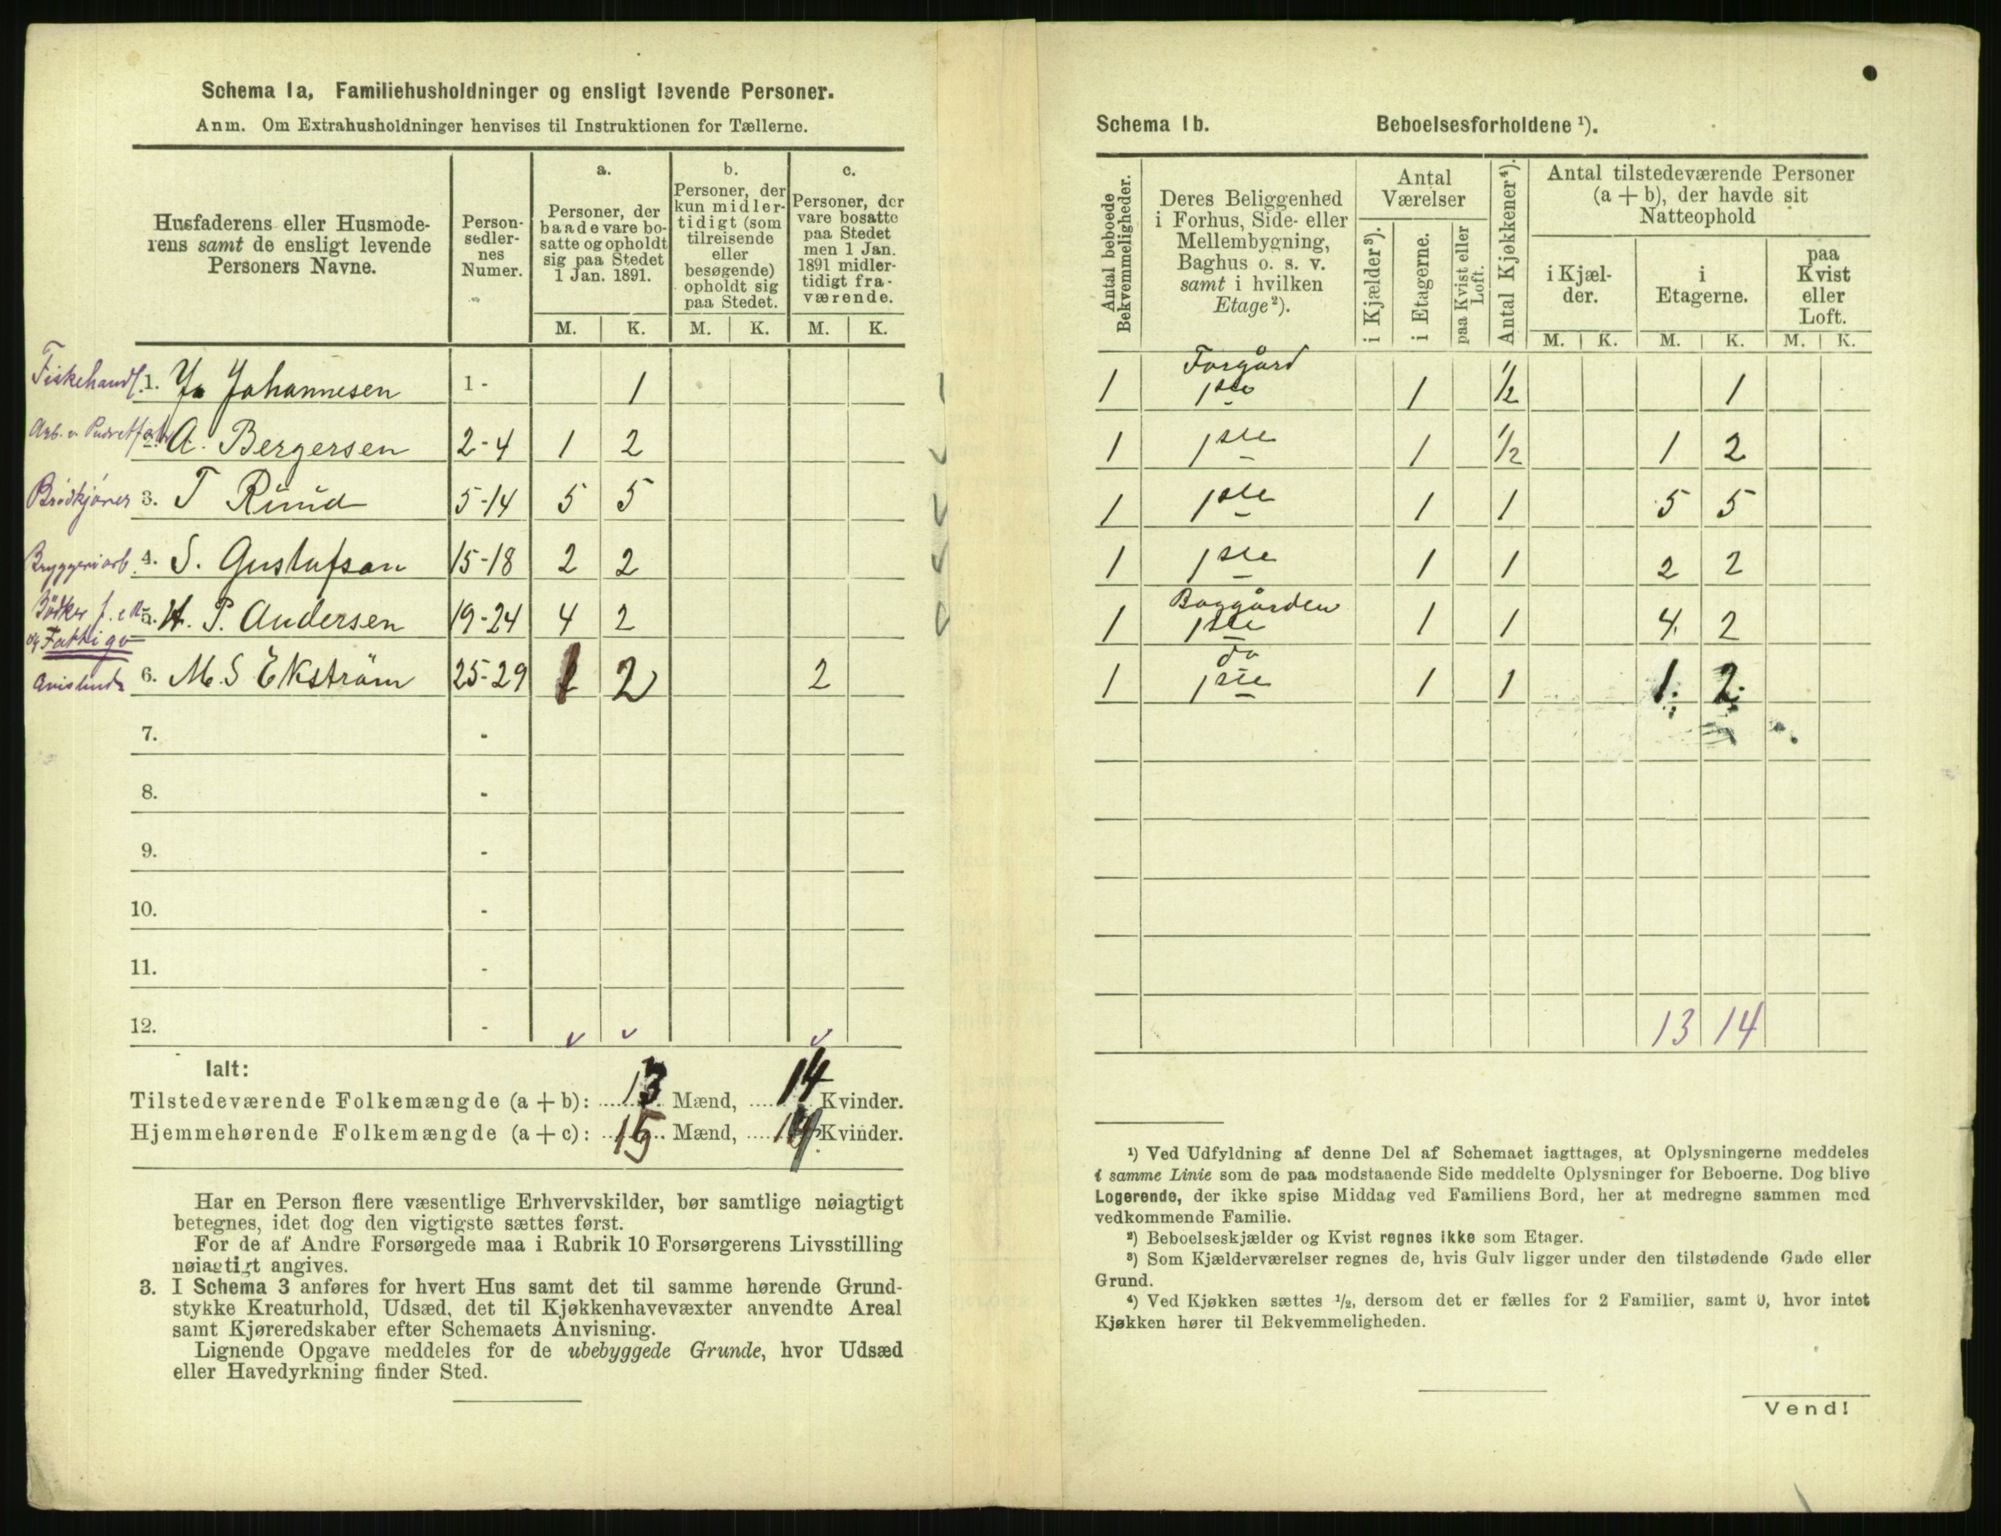 Schema 1a, Familiehusholdninger og ensligt levende Personer.
Anm. Om Extrahusholdninger henvises til Instruktionen for Tællerne.
Husfaderens eller Husmode-
rens samt de ensligt levende
Personers Navne.
Person-
sedler-
nes
Numer.
a.
Personer, der
baade vare bo-
satte og opholdt
sig paa Stedet
1 Jan. 1891.
b.
Personer, der
kun midler-
tidigt (som
tilreisende
eller
besøgende)
opholdt sig
paa Stedet.
c.
Personer, der
vare bosatte
paa Stedet
men 1 Jan.
1891 midler-
tidigt fra-
værende.
M. K. M. K. M. K.
Fiskehandl. 1. Johannesen 1- 1
2. A. Bergersen 2-4 1 2
Brödkjörer 3. T Ruud 5-14 5 5
Bryggeriarb. 4. S. Gustafson 15-18 2 2
Bödker 5. P. Andersen 19-24 4 2
og Fattigv
6. M. S Ekström 25-29 1 2 2
7. -
8. -
9. -
10. -
11. -
12. -
Ialt:
Tilstedeværende Folkemængde (a + b): 13 Mænd, 14 Kvinder.
Hjemmehørende Folkemængde (a + c): 15 Mænd, 14 Kvinder.
Har en Person flere væsentlige Erhvervskilder, bør samtlige nøiagtigt
betegnes, idet dog den vigtigste sættes først.
For de af Andre Forsørgede maa i Rubrik 10 Forsørgerens Livsstilling
nøiagtigt angives.
3. I Schema 3 anføres for hvert Hus samt det til samme hørende Grund-
stykke Kreaturhold, Udsæd, det til Kjøkkenhavevæxter anvendte Areal
samt Kjøreredskaber efter Schemaets Anvisning.
Lignende Opgave meddeles for de ubebyggede Grunde, hvor Udsæd
eller Havedyrkning finder Sted.
Schema 1b. Beboelsesforholdene ¹).
Antal beboede
Bekvemmeligheder.
Deres Beliggenhed
i Forhus, Side- eller
Mellembygning,
Baghus o. s. v.
samt i hvilken
Etage²).
Antal
Værelser
i Kjælder³).
i Etagerne.
paa Kvist eller
Loft.
Antal Kjøkkener⁴).
Antal tilstedeværende Personer
(a + b), der havde sit
Natteophold
i Kjæl-
der.
i
Etagerne.
paa
Kvist
eller
Loft.
M. K. M. K. M. K.
Forgård
1 1ste 1 1/2 1
1 1ste 1 1/2 1 2
1 1ste 1 1 5 5
1 1ste 1 1 2 2
Baggården
1 1ste 1 1 4 2
do
1 1ste 1 1 1 2
13 14
¹) Ved Udfyldning af denne Del af Schemaet iagttages, at Oplysningerne meddeles
i samme Linie som de paa modstaaende Side meddelte Oplysninger for Beboerne. Dog blive
Logerende, der ikke spise Middag ved Familiens Bord, her at medregne sammen med
vedkommende Familie.
²) Beboelseskjælder og Kvist regnes ikke som Etager.
³) Som Kjælderværelser regnes de, hvis Gulv ligger under den tilstødende Gade eller
Grund.
⁴) Ved Kjøkken sættes ½, dersom det er fælles for 2 Familier, samt 0, hvor intet
Kjøkken hører til Bekvemmeligheden.
Vend!